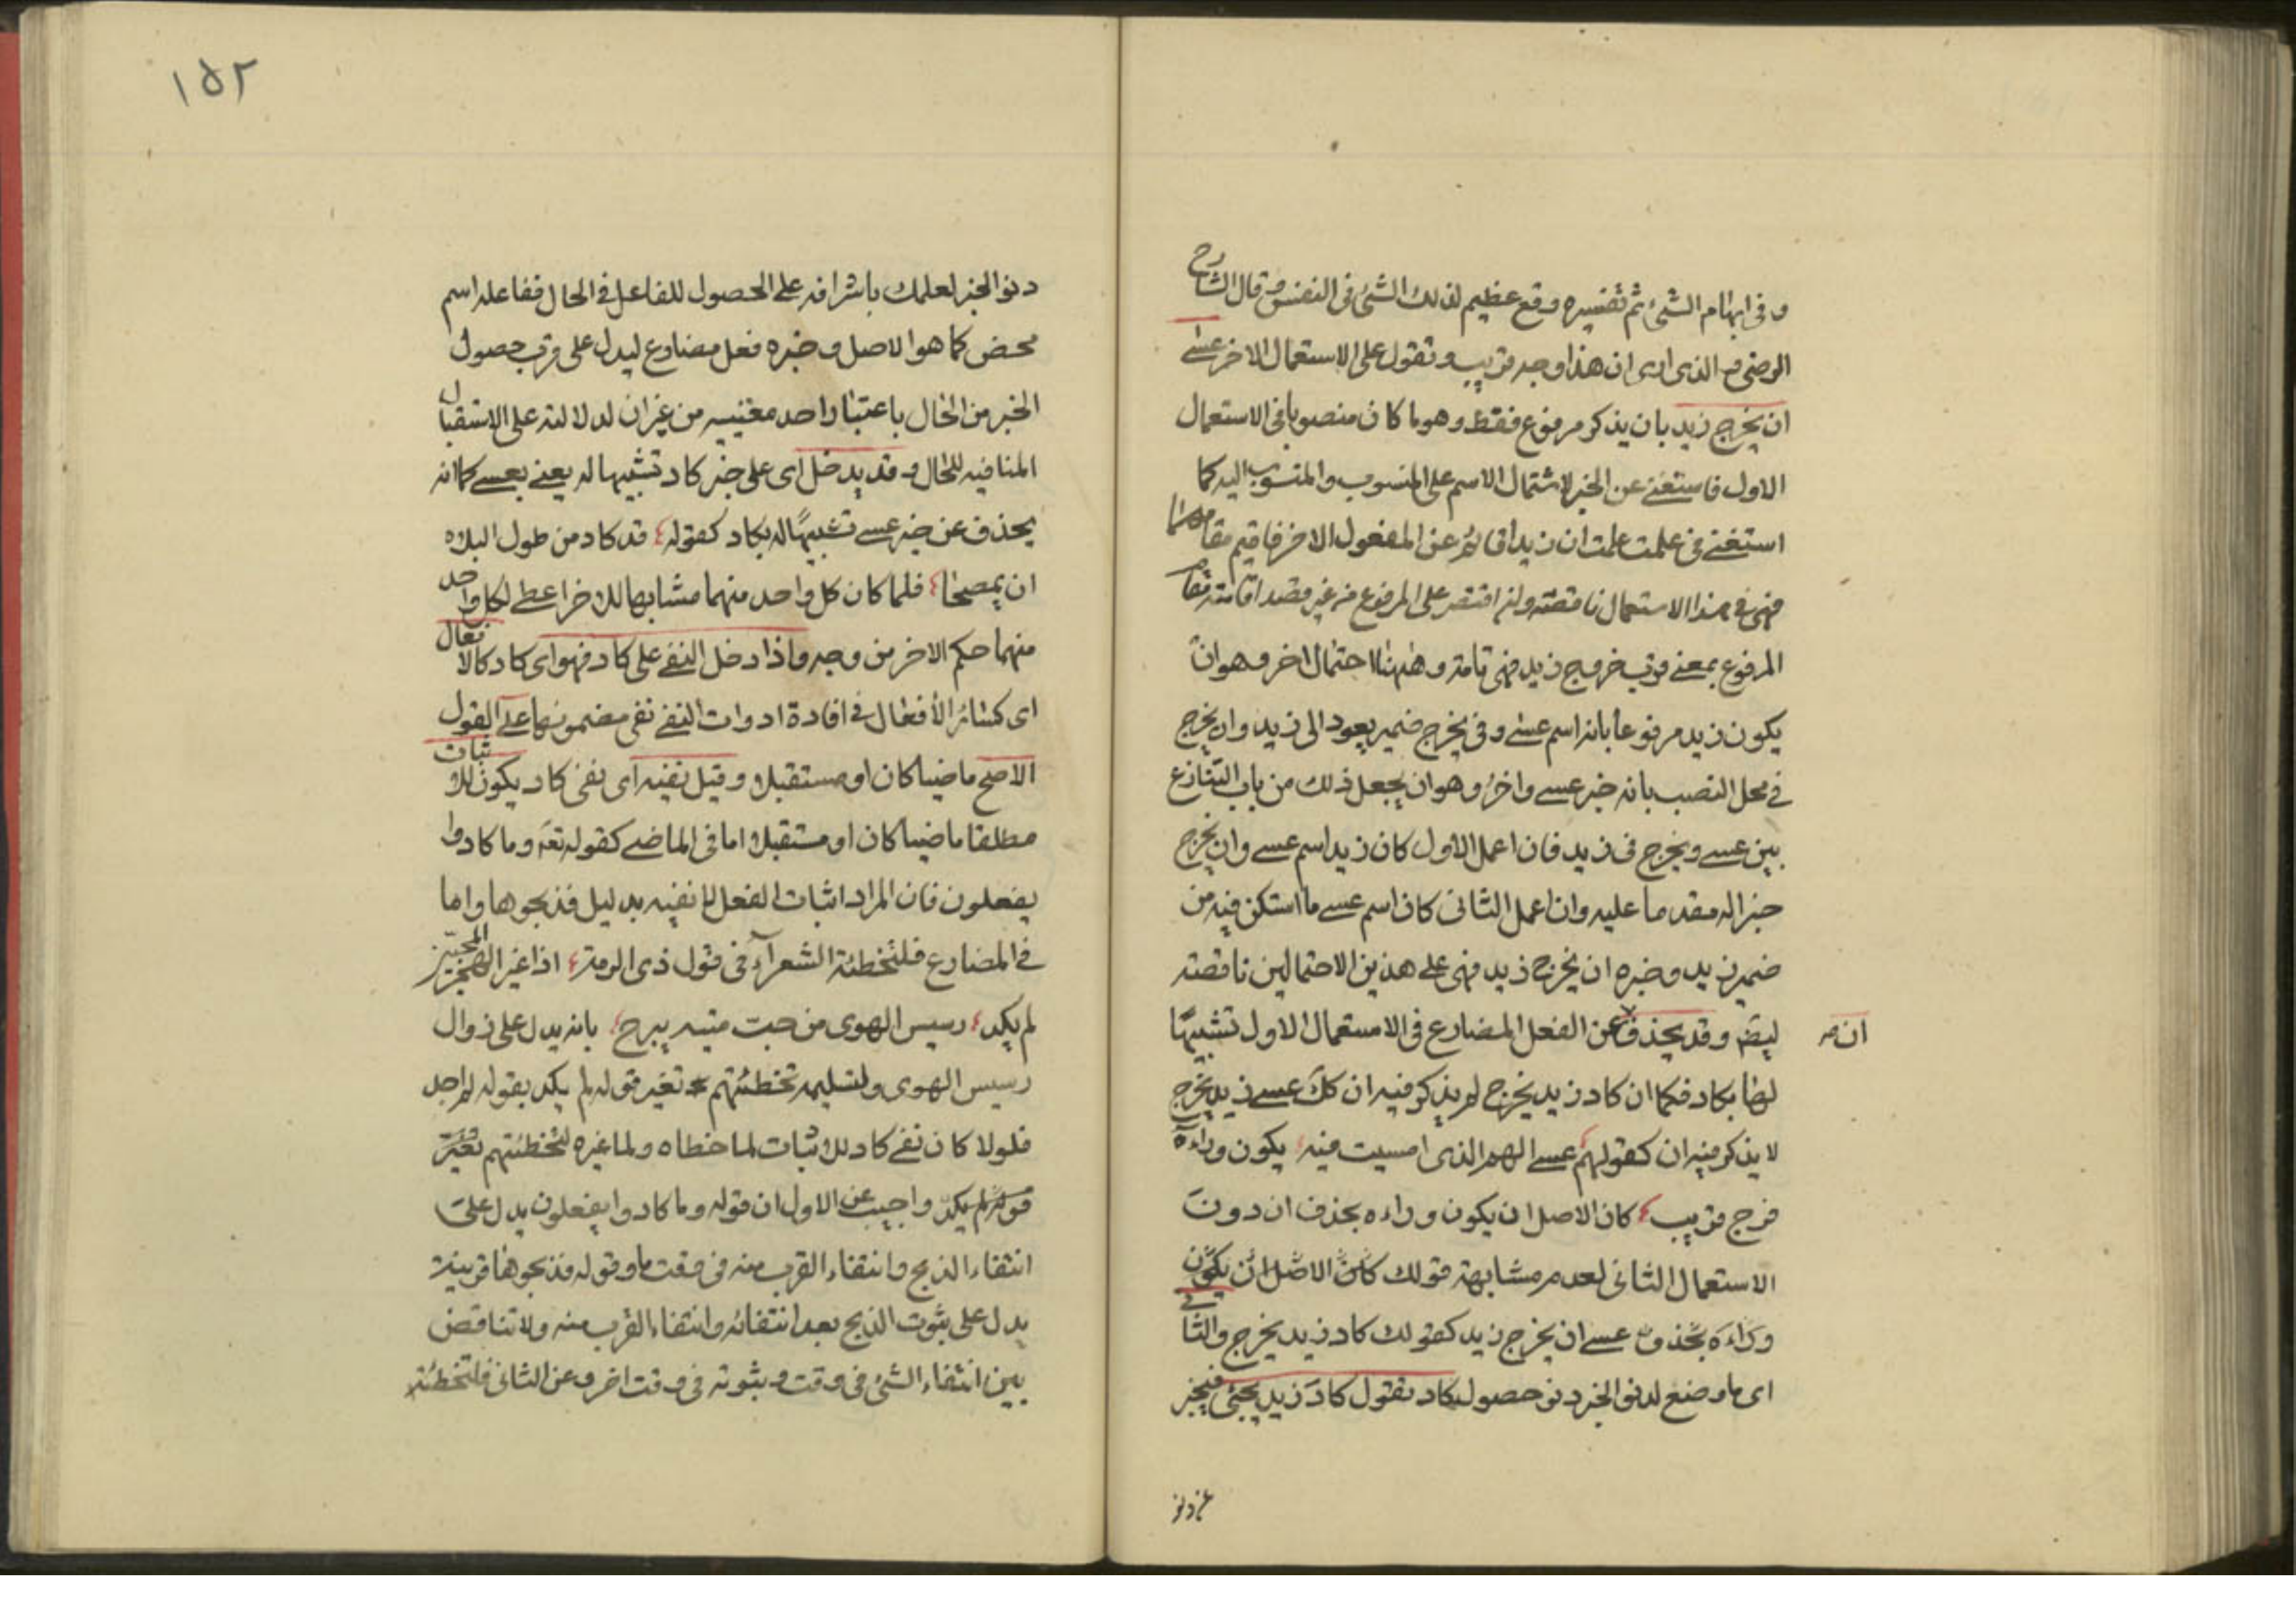 وفى ابهام الشئ ثم تفسيره وقع عظيم لذلك الشئ فى النفس وقال الشارح
الرضى والذى ارى ان هذا وجه قريب وتقول على الاستعمال الاخر عسى
ان يخرج زيد بان يذكر مرفوع فقط وهو ما كان منصوبا فى الاستعمال
الاول فاستغنى عن الخبر لاشتمال الاسم على المنسوب والمنسوب اليه كما
استغنى فى علمت ان زيدا قائم عن المفعول الاخر فاقيم مقامهما
فهى فى هذا الاستعمال ناقصة ولو اقتصر على المرفوع من غير قصد اقامته مقام
المرفوع بمعنى قرب خروج زيد فهى تامة وههنا احتمال اخر وهو ان
يكون زيد مرفوعا بانه اسم عسى وفى يخرج ضمير يعود الى زيد وان يخرج
فى محل النصب بانه خبر عسى واخر وهو ان يجعل ذلك من باب التنازع
بين عسى ويخرج فى زيد فان اعمل الاول كان زيد اسم عسى وان يخرج
خبرا له مقدما عليه وان اعمل الثانى كان اسم عسى ما استكن فيه من
ضمير زيد وخبره ان يخرج زيد فهى على هذين الاحتمالين ناقصة
ان صح
ليضم وقد يحذف عن الفعل المضارع فى الاستعمال الاول تشبيها
لها بكاد فكما ان كاد زيد يخرج لم يذكر فيه ان كك عسى زيد يخرج
لا يذكر فيه ان كقولهم عسى الهم الذى امسيت فيه يكون وراءه
فرج قريب كان الاصل ان يكون وراءه بحذف ان دون
الاستعمال الثانى لعدم مشابهة قولك كان الاصل ان يكون
وراءه بحذف عسى ان يخرج زيد كقولك كاد زيد يخرج والثانى
اى ما وضع لدنو الخبر دنو حصول كاد تقول كاد زيد يجئ فيخبر
عن دنو
١٥٢
دنو الخبر لعلمك باشرافه على الحصول للفاعل فى الحال ففاعله اسم
محض كما هو الاصل وخبره فعل مضارع ليدل على قرب حصول
الخبر من الحال باعتبار احد معنييه من غير ان لدلالته على الاستقبال
المنافيه للحال وقد يدخل اى على خبر كاد تشبيها له يعنى بعسى كما انه
يحذف عن خبر عسى تشبيها له بكاد كقوله قد كاد من طول البلاه
ان يمصحا فلما كان كل واحد منهما مشابها للاخر اعطى لكل واحد
منهما حكم الاخر من وجه واذا دخل النفى على كاد فهو اى كاد كالافعال
اى كسائر الأفعال فى افادة ادوات النفى نفى مضمونها على القول
الاصح ماضيا كان او مستقبلا وقيل نفيه اى نفى كاد يكون للاثبات
مطلقا ماضيا كان او مستقبلا اما فى الماضى كقوله تعه وما كادوا
يفعلون فان المراد اثبات الفعل لا نفيه بدليل فذبحوها واما
فى المضارع فلتخطئة الشعرآء فى قول ذى الرمة اذا غير الهجر المحبين
لم يكد رسيس الهوى من حب ميه يبرح بانه يدل على زوال
رسيس الهوى ولتسليمه تخطئتهم تغير قوله لم يكد بقوله لم اجد
فلولا كان نفى كاد للاثبات لما خطاه ولما غيره لتخطئتهم تغير
قوله لم يكد واجيب عن الاول ان قوله وما كادوا يفعلون يدل على
انتفاء الذبح وانتفاء القرب منه فى وقت ما وقوله فذبحوها قرينة
يدل على ثبوت الذبح بعد انتفائه وانتفاء القرب منه ولا تناقض
بين انتفاء الشئ فى وقت وثبوته فى وقت اخر وعن الثانى فلتخطئة